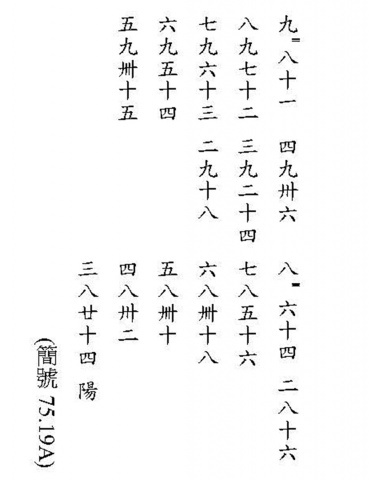 九=八十一 四九卅六 八=六十四 二八十六
八九七十二 三九二十四 七八五十六
七九六十三 二九十八 六八卌十八
六九五十四 五八卌十
五九卌十五 四八卅二
三八廿十四 陽
(簡號 75.19A)